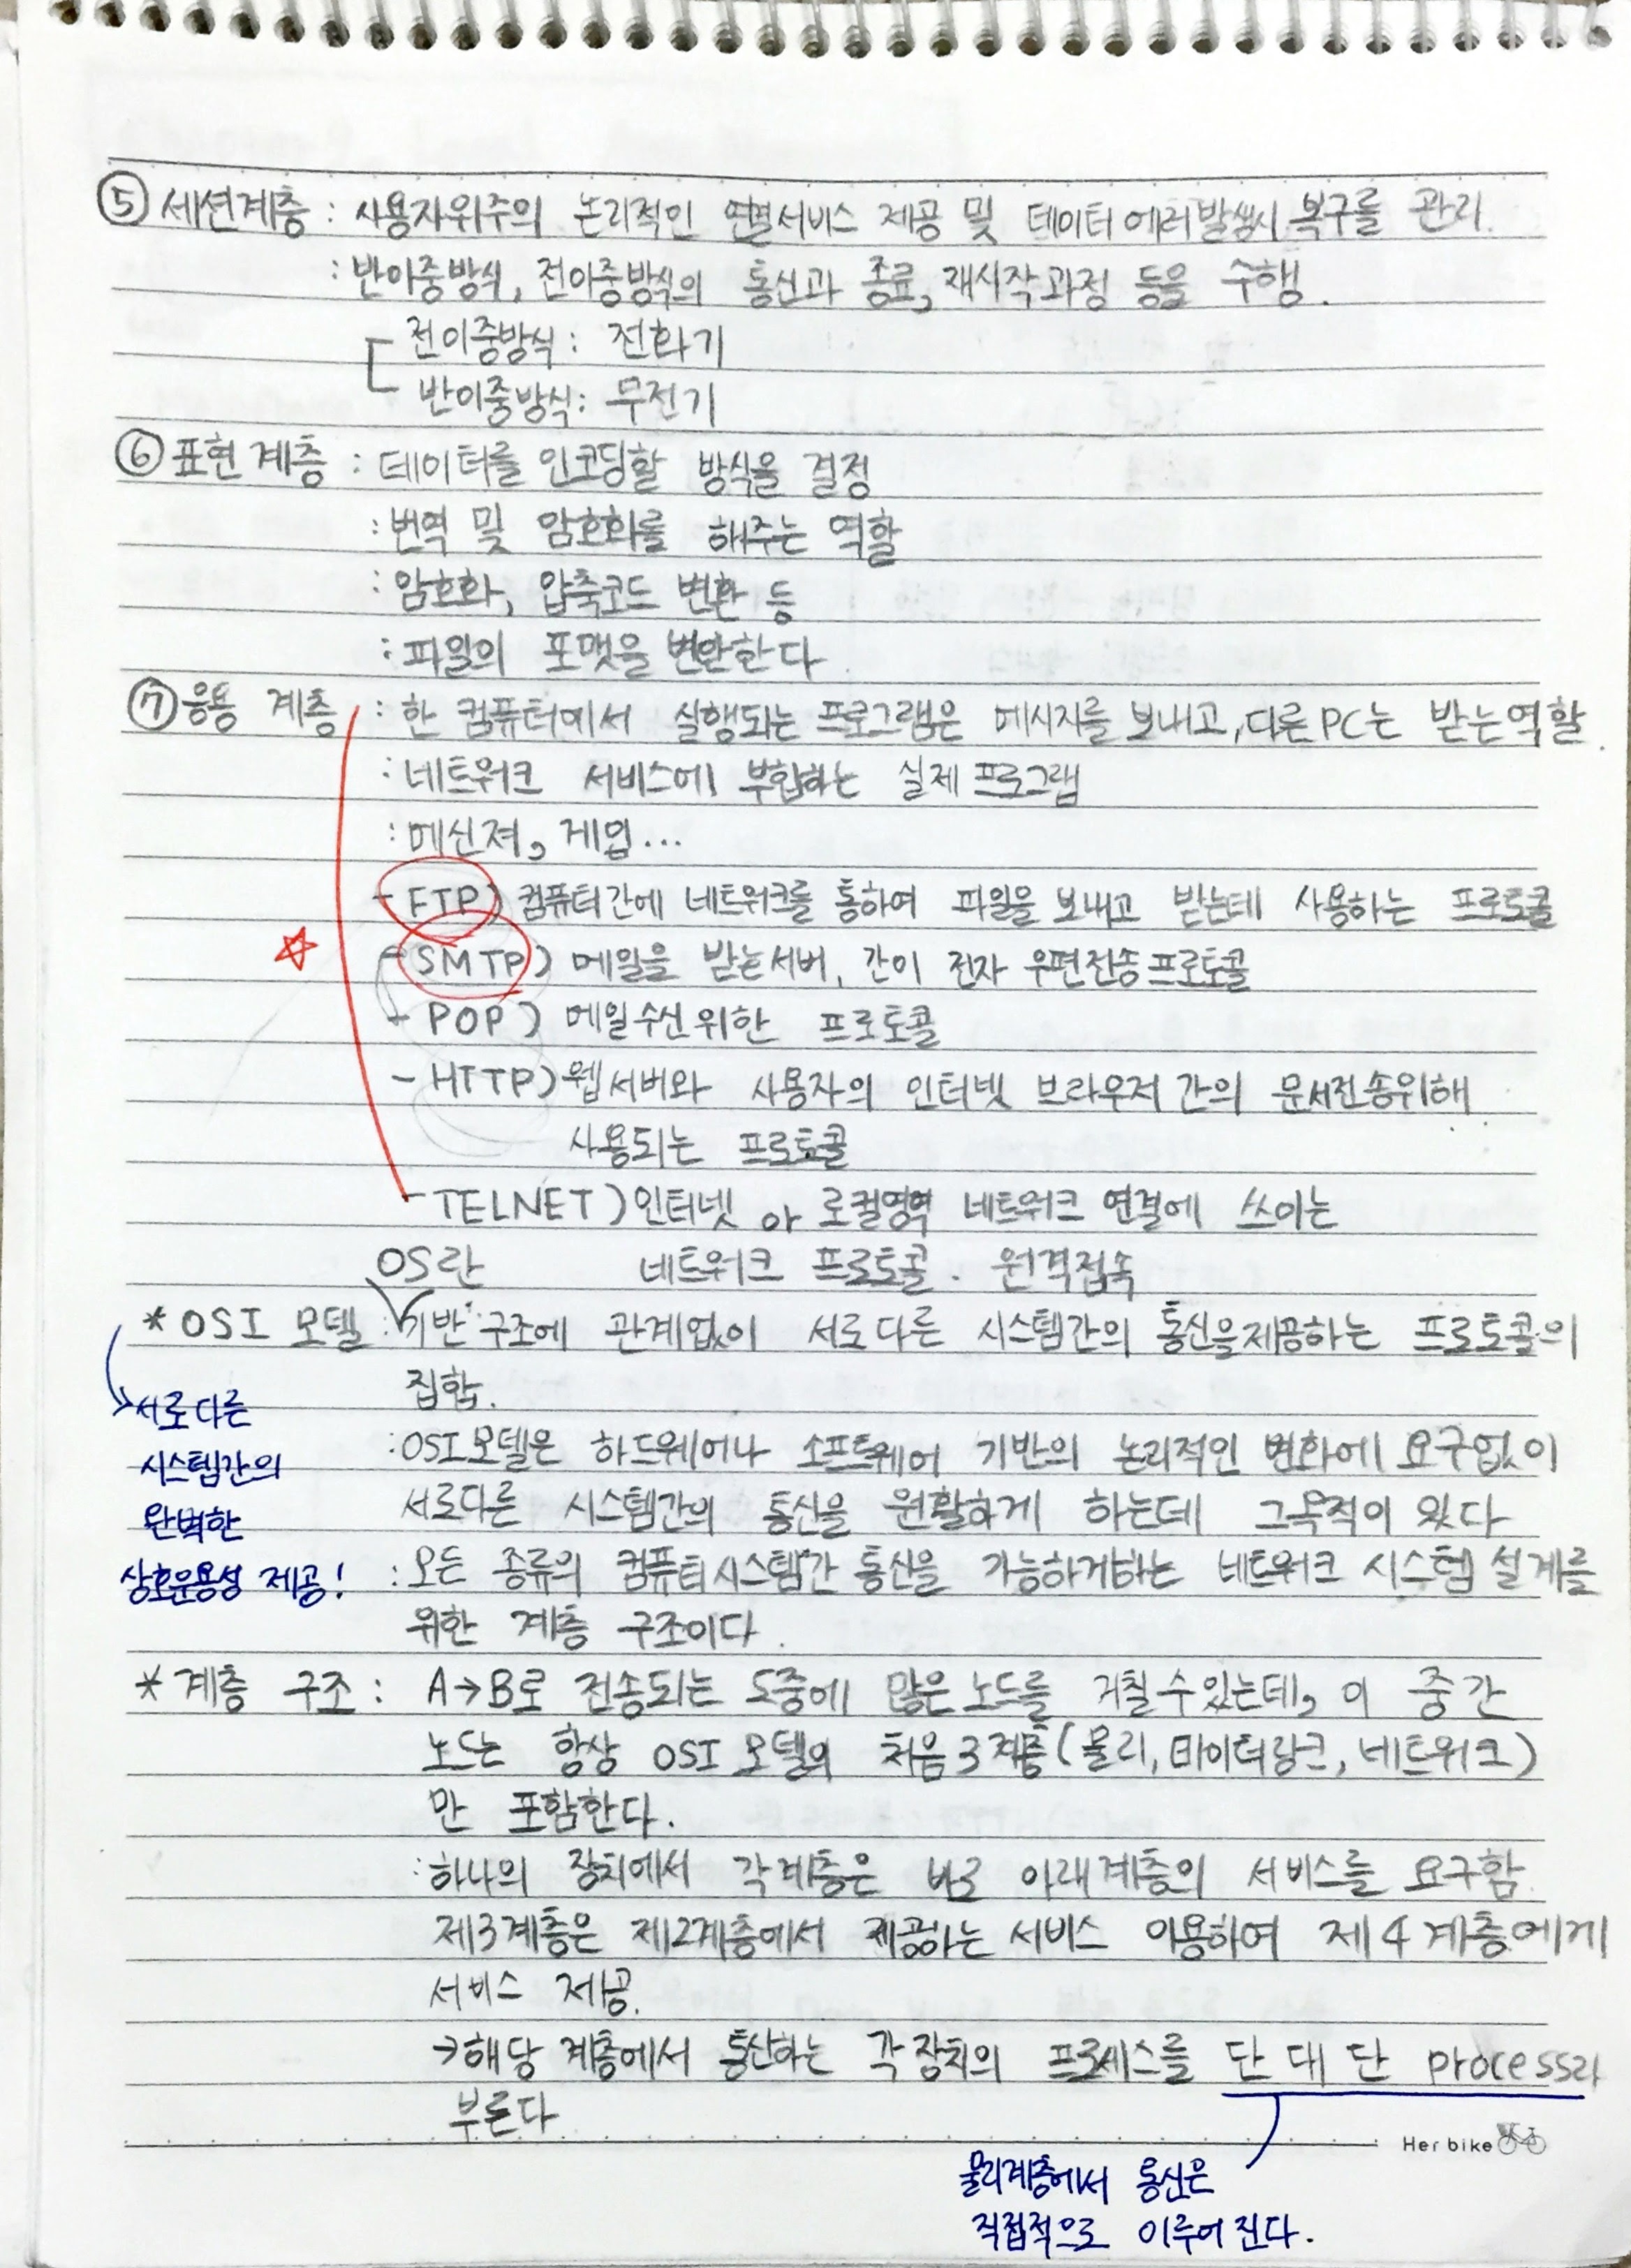 ⑤ 세션계층 : 사용자위주의 논리적인 연결서비스 제공 및 데이터 에러발생시 복구를 관리.
: 반이중방식, 전이중방식의 통신과 종료, 재시작과정 등을 수행.
전이중방식 : 전화기
반이중방식 : 무전기
⑥ 표현 계층 : 데이터를 인코딩할 방식을 결정
: 번역 및 암호화를 해주는 역할
: 암호화, 압축코드 변환 등
: 파일의 포맷을 변환한다
⑦ 응용 계층 : 한 컴퓨터에서 실행되는 프로그램은 메시지를 보내고, 다른PC는 받는역할.
: 네트워크 서비스에 부합하는 실제 프로그램
: 메신져, 게임...
- FTP) 컴퓨터간에 네트워크를 통하여 파일을 보내고 받는데 사용하는 프로토콜
☆ - SMTP) 메일을 받는서버, 간이 전자 우편전송프로토콜
- POP) 메일수신위한 프로토콜
- HTTP) 웹서버와 사용자의 인터넷 브라우저 간의 문서전송위해
사용되는 프로토콜
- TELNET) 인터넷 or 로컬영역 네트워크 연결에 쓰이는
네트워크 프로토콜. 원격접속
OS란
* OSI 모델 : 기반 구조에 관계없이 서로다른 시스템간의 통신을제공하는 프로토콜의
집합.
: OSI모델은 하드웨어나 소프트웨어 기반의 논리적인 변화에 요구없이
서로다른 시스템간의 통신을 원활하게 하는데 그목적이 있다
: 모든 종류의 컴퓨터시스템간 통신을 가능하게하는 네트워크 시스템 설계를
위한 계층 구조이다.
→서로다른
시스템간의
완벽한
상호운용성 제공!
* 계층 구조 : A→B로 전송되는 도중에 많은노드를 거칠수있는데, 이 중간
노드는 항상 OSI 모델의 처음3계층(물리, 데이터링크, 네트워크)
만 포함한다.
: 하나의 장치에서 각계층은 바로 아래계층의 서비스를 요구함.
제3계층은 제2계층에서 제공하는 서비스 이용하여 제4계층에게
서비스 제공.
→해당 계층에서 통신하는 각 장치의 프로세스를 단 대 단 process라
부른다
Her bike
물리계층에서 통신은
직접적으로 이루어진다.